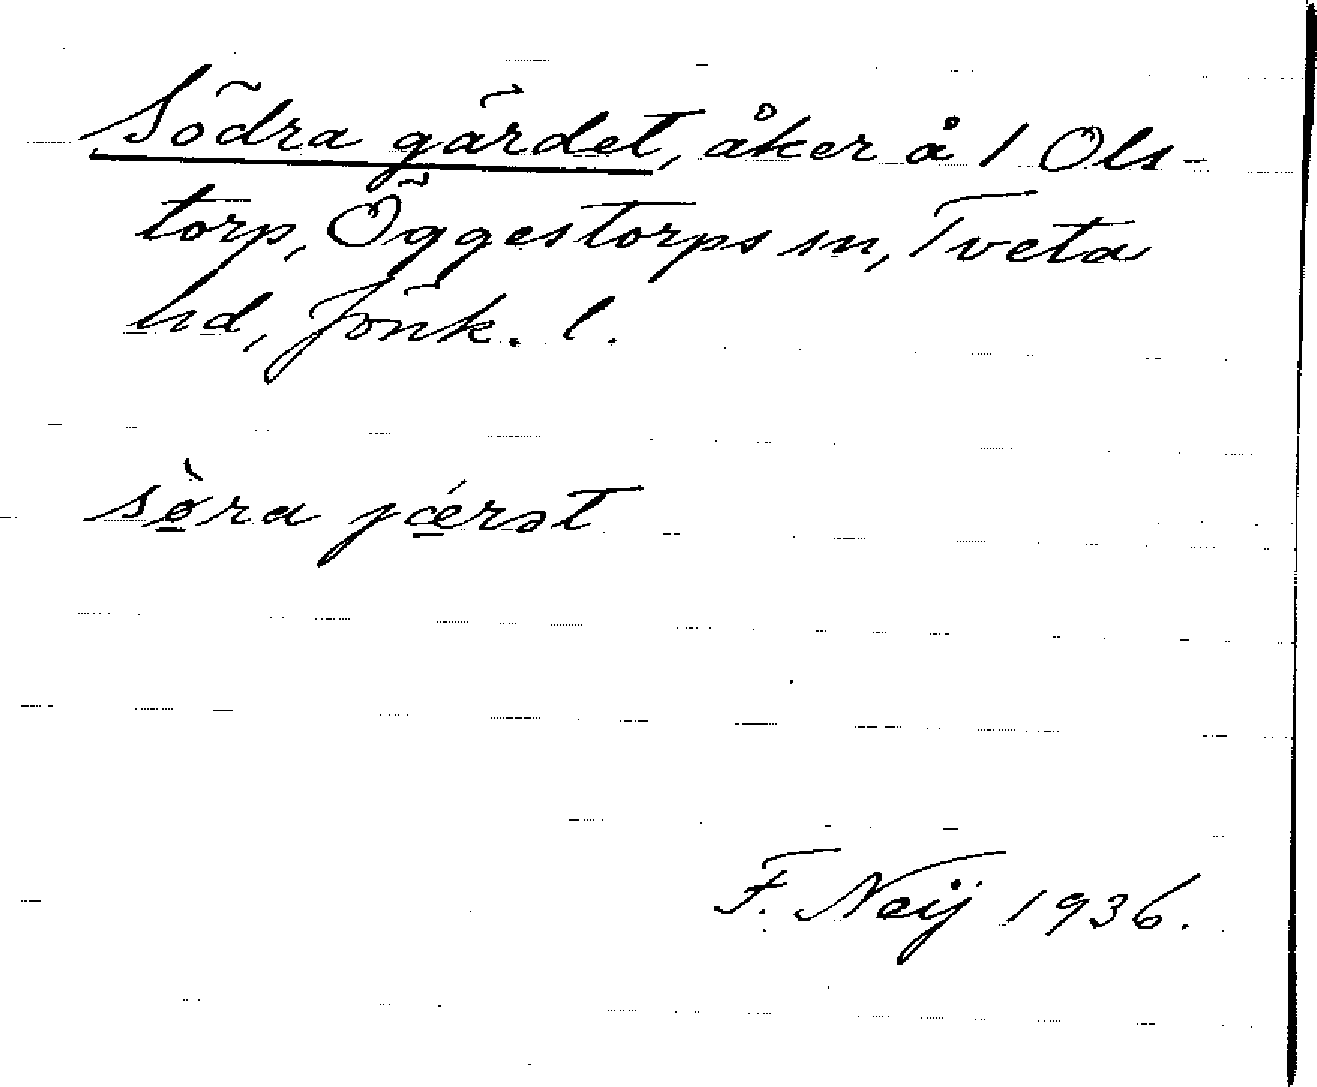 Södra gärdet, åker å 1 Ols-
torp, Öggestorps sn, Tveta
hd, Jönk. l.
sö̀ra jǽrət
F. Neij 1936.